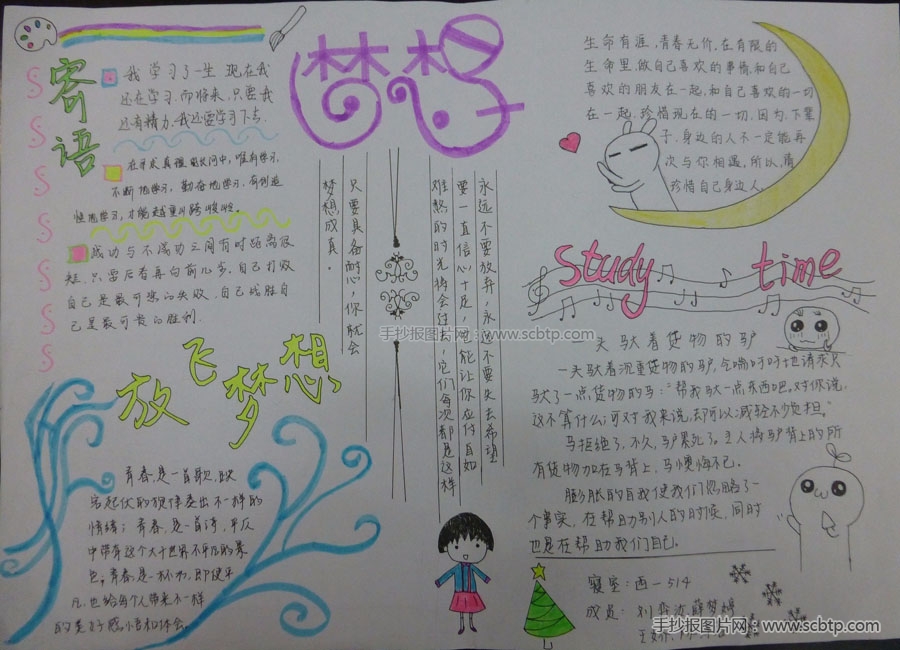 梦想
寄语
我学习了一生,现在我
还在学习,而将来,只要我
还有精力,我还要学习下去.
在寻求真理的长河中,唯有学习,
不断地学习,勤奋地学习,有创造
性地学习,才能越重山跨峻岭.
成功与不成功之间有时距离很
短,只要后者再向前几步.自己打败
自己是最可悲的失败,自己战胜自
己是最可贵的胜利.
放飞梦想
青春,是一首歌,映
的旋律奏出不一样的
情绪;青春,是一首诗,平仄
中带着这个大千世界不平凡的
色,青春,是一杯水,即使平
凡,也给每个人带来不一样
的美好感悟和体会.
只要具备耐心,你就会
梦想成真.
永远不要放弃,永远不要失去希望
要一直信心十足,它能让你应付自如
难熬的时光将会过去,它们每次都是这样
手抄报图片网:www.scbtp.com
生命有涯,青春无价,在有限的
生命里,做自己喜欢的事情,和自己
喜欢的朋友在一起,和自己喜欢的一切
在一起,珍惜现在的一切,因为,下辈
子,身边的人不一定能再
次与你相遇,所以,请
珍惜自己身边人。
study time
一头驮着货物的驴
一头驮着沉重货物的驴,气喘吁吁地请求只
驮了一点货物的马:“帮我驮一点东西吧。对你说,
这不算什么;可对我来说,却可以减轻不少负担。”
马拒绝了,不久,驴累死了。主人将驴背上的所
有货物加在马背上,马懊悔不已。
膨胀的自我使我们忽略了一
个事实,在帮助别人的时候,同时
也是在帮助我们自己。
寝室:西一514
成员:
手抄报图片网:www.scbtp.com